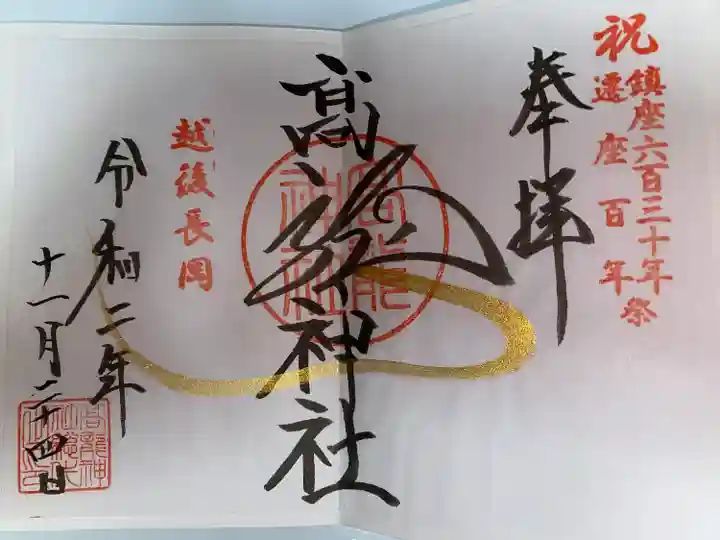 祝
鎮座六百三十年祭
遷座百年
奉拝
髙龍神社
越後長岡
令和二年
十一月二十四日